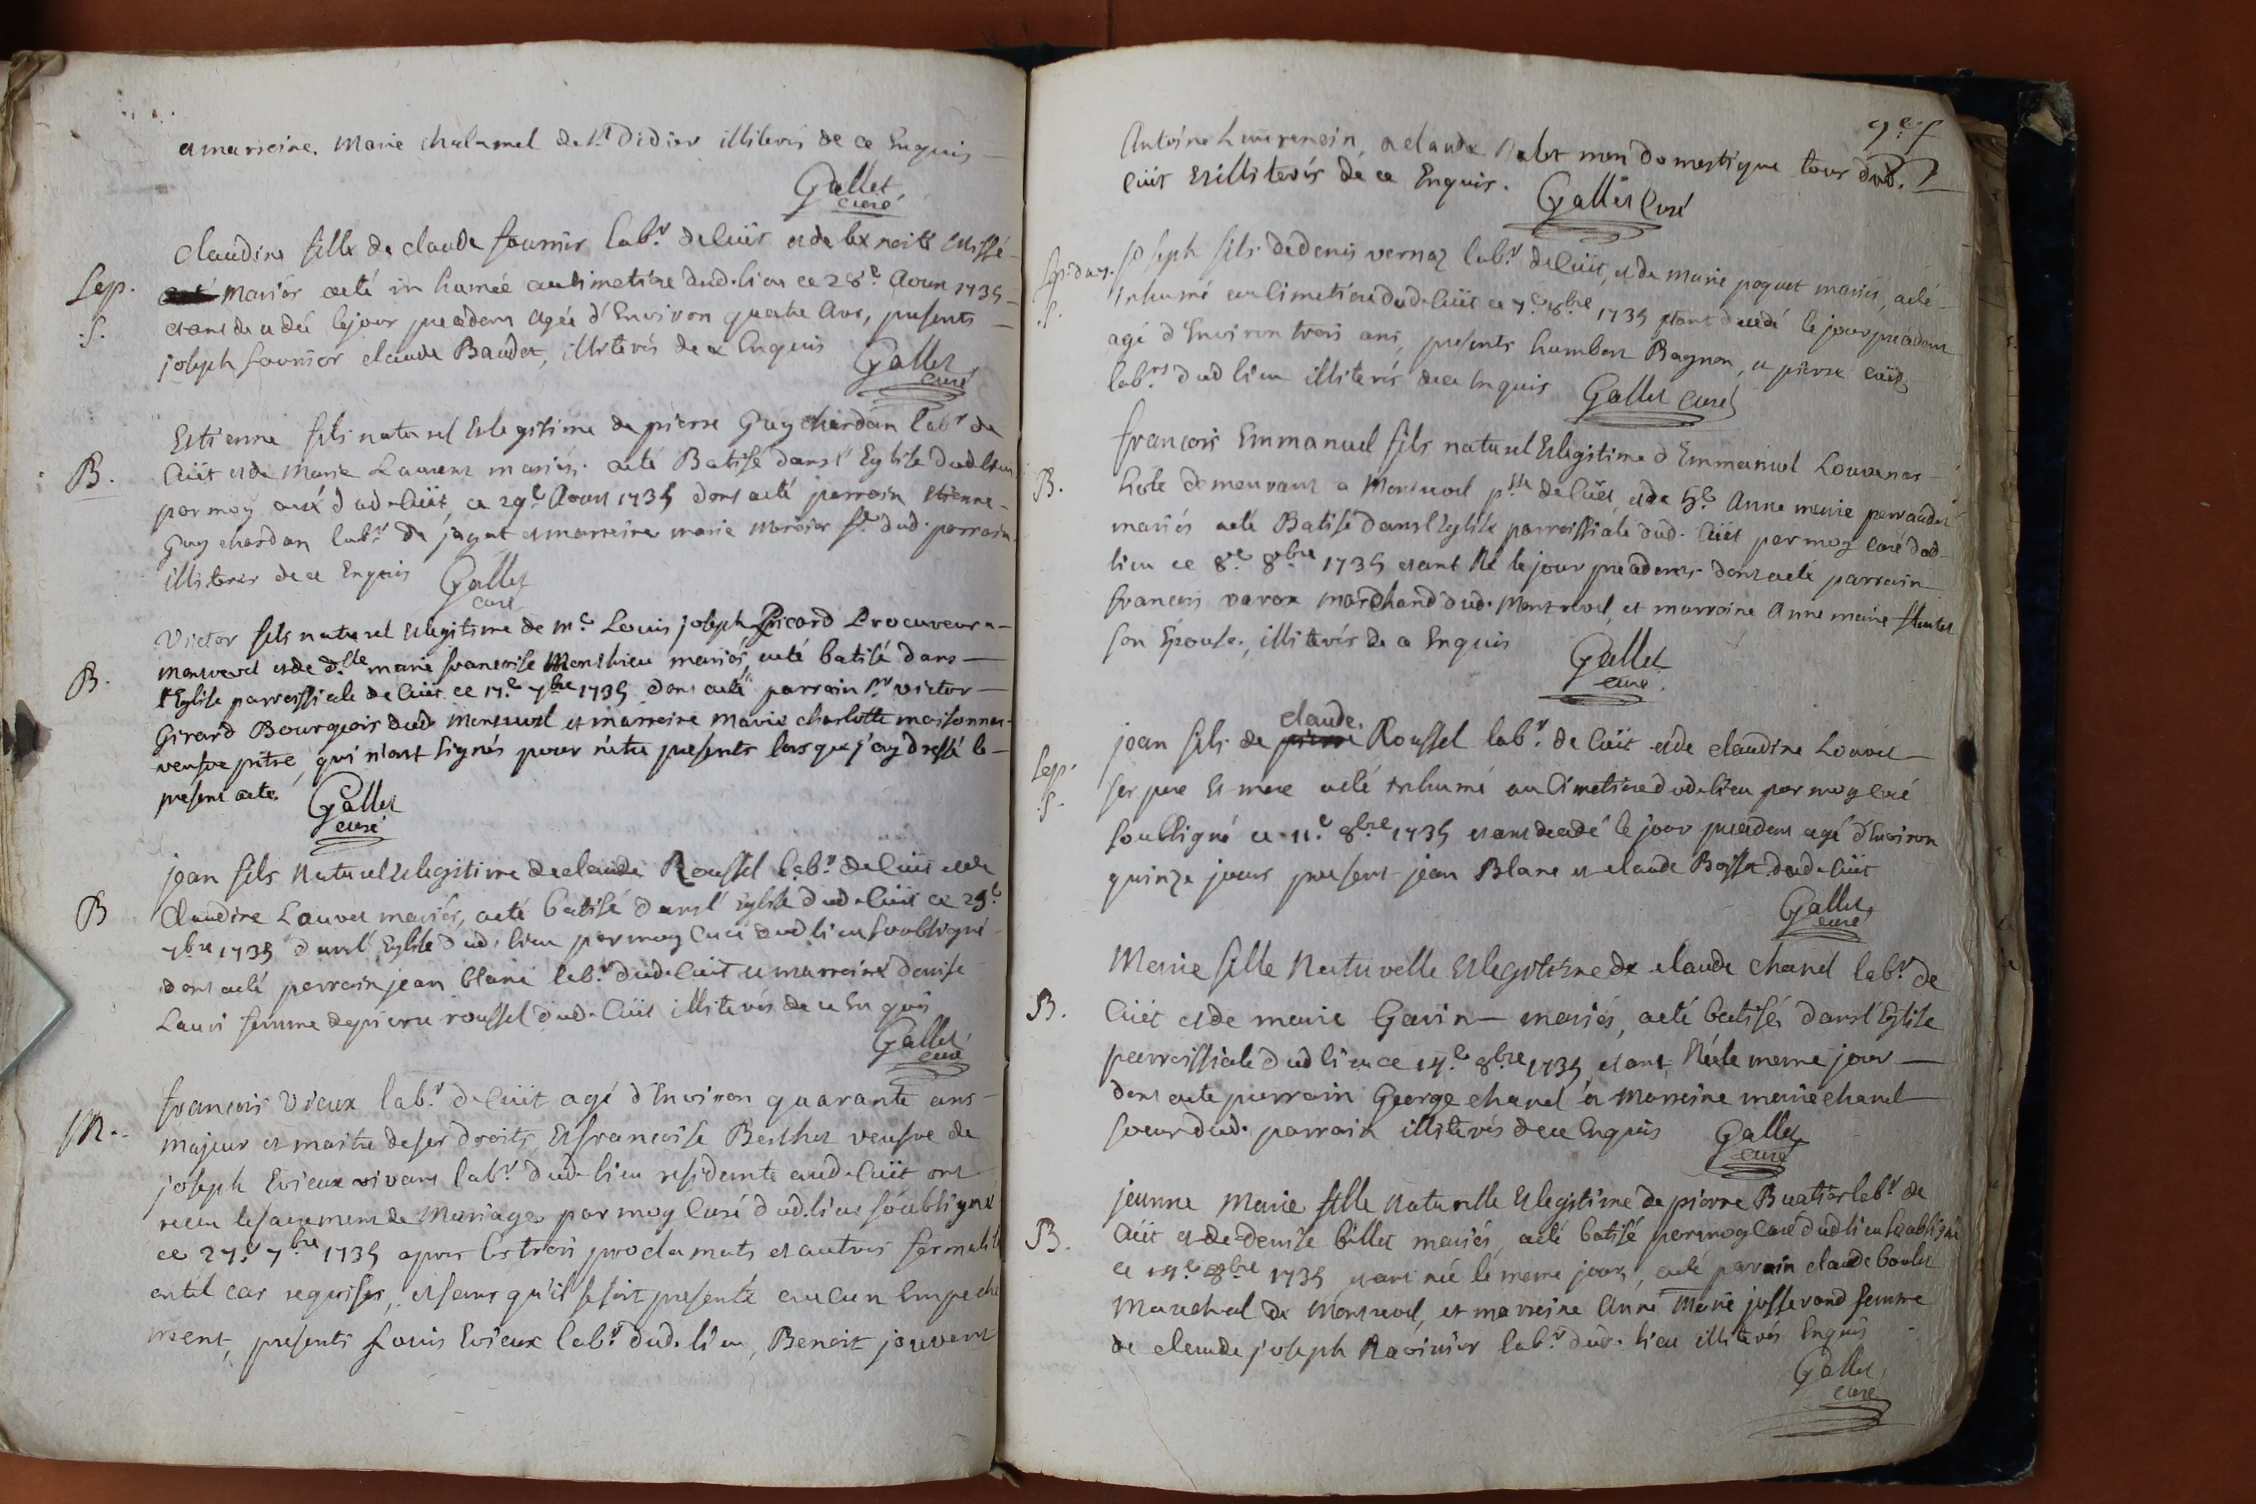 et marreine. Marie chalamel de St Didier illiterés de ce Enquis
Gallet
curé
Claudine fille de claude fournir lab.r de Cuit et de
Sep.
mariés aeté in humée au Cimetiere dud. lieu ce 28e Aoust 1735
S.
etant decedée le jour precedent agée d'Environ quatre Ans, presents
joseph fournier claude Baudet, illiterés de ce Enquis
Gallet
curé
Estienne fils naturel et legitime de pierre Guychardan lab.r de
B.
Cuit et de Marie Laurent mariés. aeté Batisé dans l'Eglise dud. lieu
par moy curé dud. Cuit, ce 29e Aoust 1735 dont acte parrain Etienne
Guychardan lab.r de jayat et marreine marie mercier f.e dud. parrain
illiterés de ce Enquis
Gallet
curé
Victor fils naturel et legitime de m.e Louis joseph Picard Procureur a
B.
Montrevel et de d.lle marie francoise Monthieu mariés, aeté batisé dans
l'Eglise parroissiale de Cuit ce 17.e 7bre 1735 dont acte parrain Sr victor
Girard Bourgeois dud. Montrevel et marreine Marie charlotte maisonnas
qui n'ont signés pour n'etre presents lorsque j'ay dressé le
present acte.
Gallet
curé
jean fils Naturel et legitime de claude Roussel lab.r de Cuit et de
B
Claudine Louvet mariés, aeté batisé dans l'Eglise dud. Cuit ce 29.e
7bre 1735 dans l'Eglise dud. lieu par moy Curé dud. lieu soubsigné
dont acte parrain jean blanc lab.r dud. Cuit et marreine denise
Lauri femme de pierre roussel dud. Cuit illiterés de ce Enquis
Gallet
curé
francois Vieux lab.r de Cuit agé d'Environ quarante ans
M.
majeur et maitre de ses droits, et francoise Berthet veufve de
joseph Evieux vivant lab.r dud. lieu residente aud. Cuit ont
receu le sacrement de Mariage par moy Curé dud. lieu soubsigné
ce 27.e 7bre 1735 apres les trois proclamats et autres formalités
en tel cas requises, et sans qu'il se soit presenté aucun Empeche
ment, presents Louis Evieux lab.r dud. lieu, Benoit jouvent
Antoine et claude mon domestique tous dud.
Cuit et illiterés de ce Enquis.
Gallet Curé
joseph fils de denis vernoz lab.r de Cuit, et de marie poquet mariés, aeté
S.
inhumé au Cimetiere dud. Cuit ce 7.e 8bre 1735 etant decedé le jour precedent
agé d'Environ trois ans, presents humbert Bagnon, et pierre
lab.rs dud. lieu illiterés de ce Enquis
Gallet Curé
francois Emmanuel fils naturel et legitime d'Emmanuel
B.
hoste demeurant a Montrevel p.sse de Cuit, et de Anne marie perraudet
mariés aeté Batisé dans l'Eglise parroissiale dud. Cuit par moy Curé dud.
lieu ce 8.e 8bre 1735 etant Né le jour precedent dont acte parrain
francois varax marchand dud. Montrevel, et marraine Anne marie
son Epouse, illiterés de ce Enquis
Gallet
curé
claude
jean fils de pierre Roussel lab.r de Cuit et de claudine Louvet
Sep.
ses pere et mere aeté inhumé au Cimetiere dud. lieu par moy Curé
S.
soubsigné ce 11.e 8bre 1735 etant decedé le jour precedent agé d'Environ
quinze jours present jean Blanc et claude Bosset dud. Cuit
Gallet
curé
Marie fille Naturelle et legitime de claude chanel lab.r de
B.
Cuit et de marie Gavin mariés, aeté batisée dans l'Eglise
parroissiale dud. lieu ce 14.e 8bre 1735 etant Née le meme jour
dont acte parrain George chanel et Marreine marie chanel
soeur dud. parrain illiterés de ce Enquis
Gallet
curé
jeanne Marie fille naturelle et legitime de pierre Buatier lab.r de
B.
Cuit et de denise billet mariés, aeté batisé par moy Curé dud. lieu soubsigné
ce 14.e 8bre 1735 etant née le meme jour, acte parrain claude boulet
Marechal de Montrevel, et marreine Anne Marie josserand femme
de claude joseph Ravinier lab.r dud. lieu illiterés Enquis
Gallet
curé